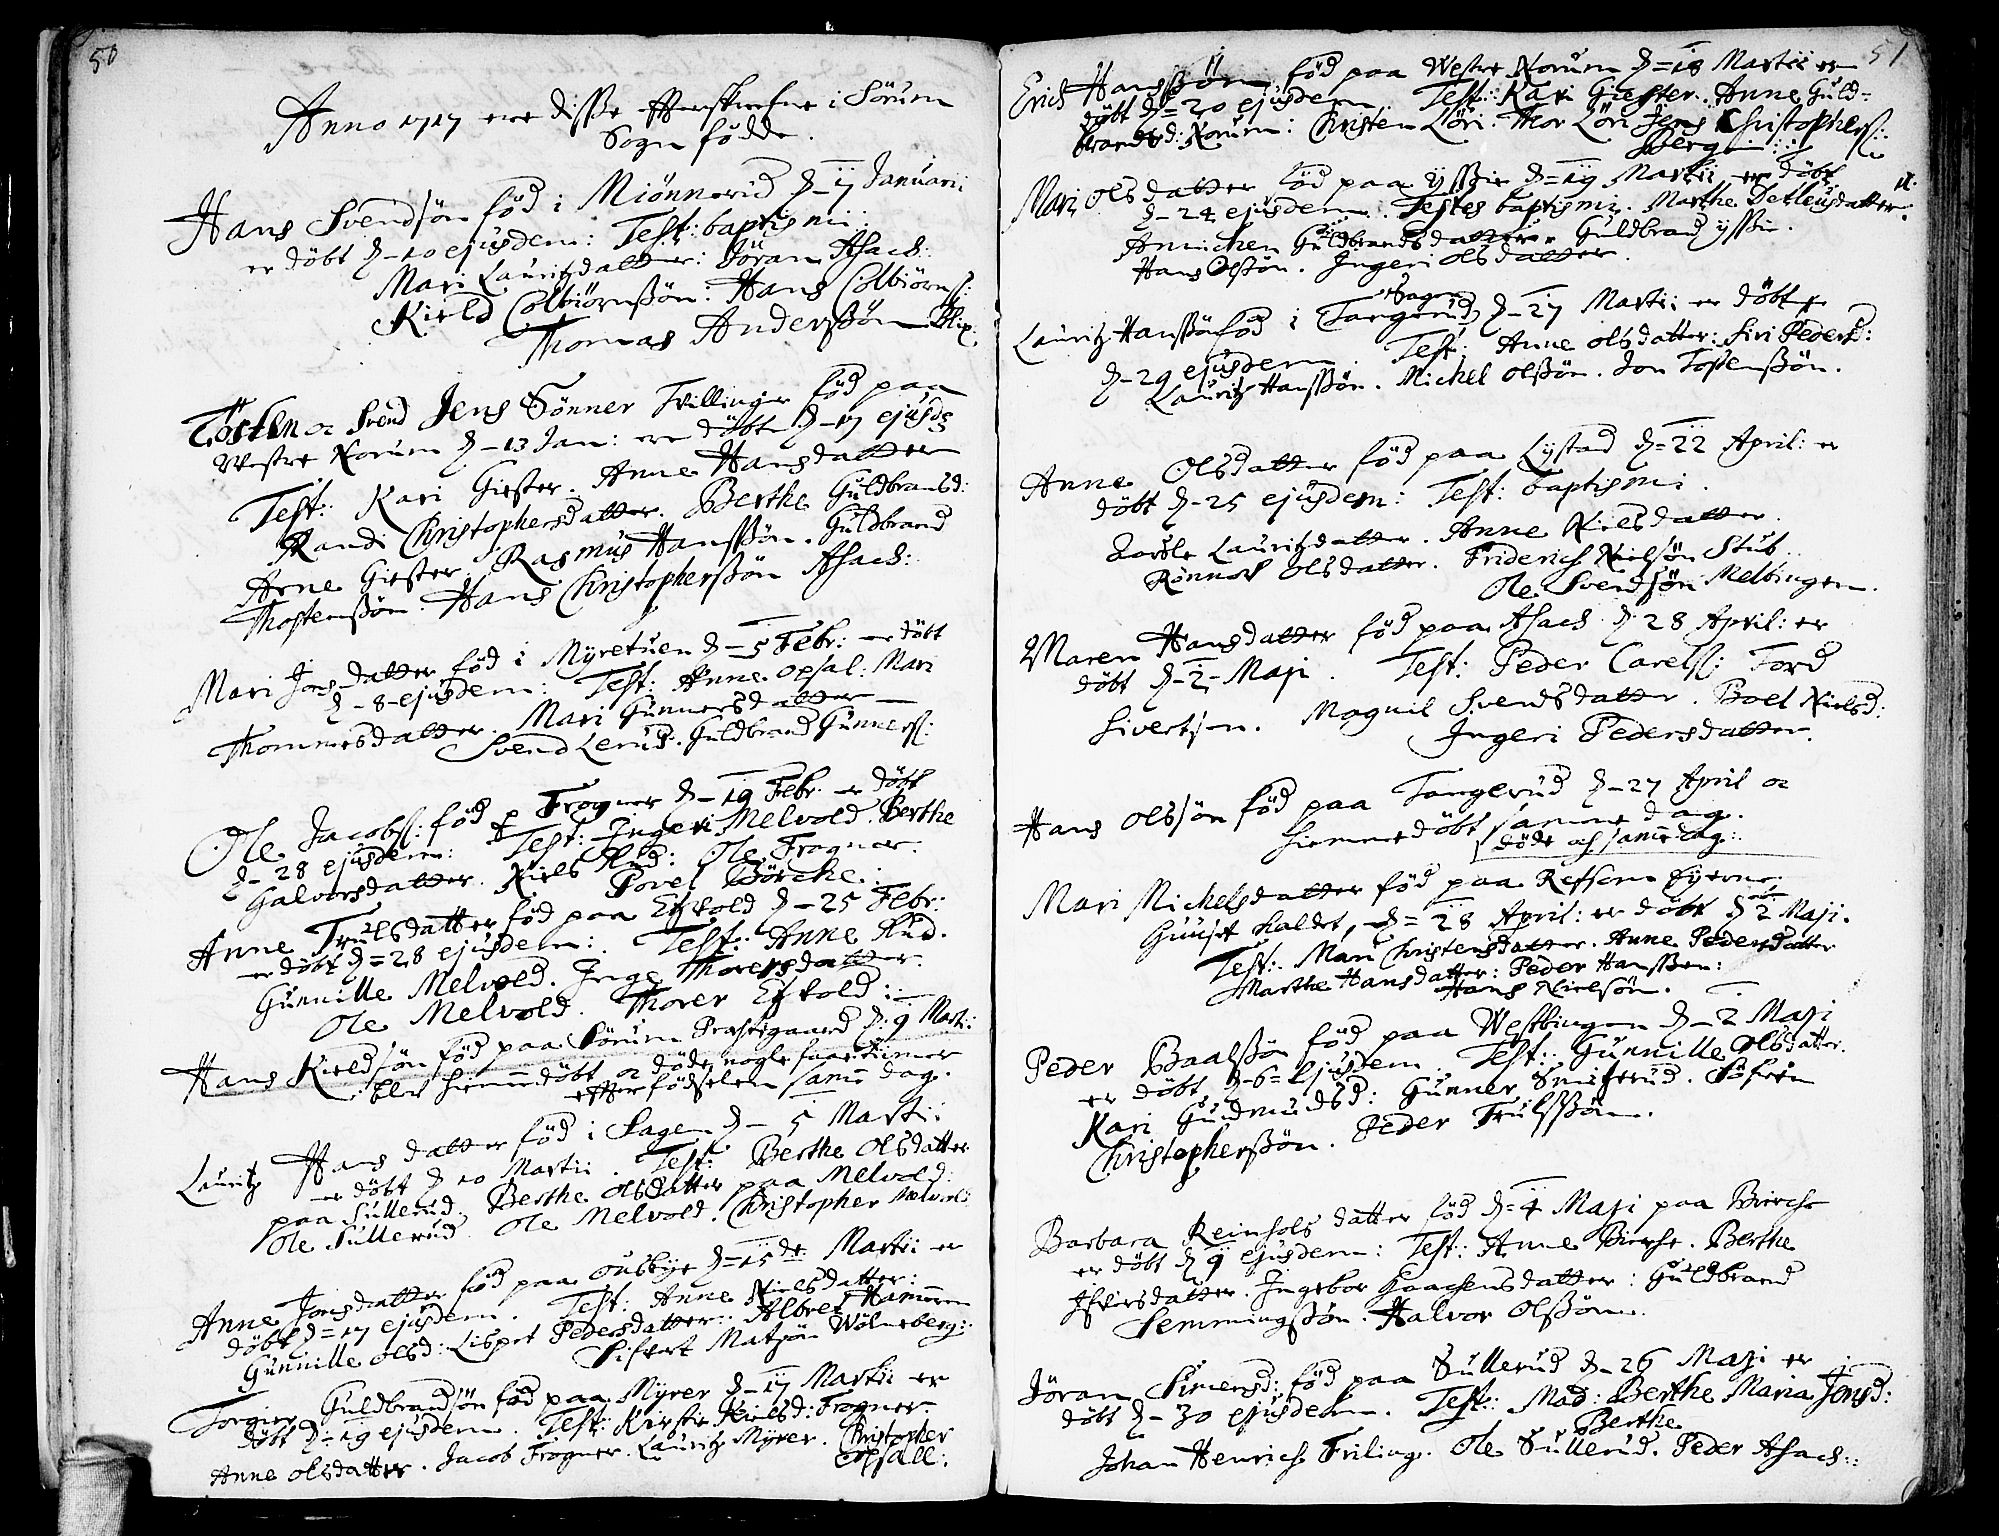 50
Anno 1717 ere disse Efterskrefne i Sörum
Sogn födde.
Hans Svendsön föd i Miönnerid d. 7 Januarii
er döbt d. 10 ejusdem: Test: baptismi:
Mari Lauritzdatter: Jöran Asach:
Kield Colbiörnßön. Hans Colbiörnß:
Thomas Anderßön
Tosten oc Svend Jens Sönner Tvillinger föd paa
Westre Norum d. 13 Jan: ere döbte d. 17 ejusd:
Test: Kari Giester. Anne Hansdatter
Randi Christophersdatter. Berthe Guldbransd:
Arne Giester. Rasmus Hansßön. Guldbrand
Thostensßön. Hans Christopherßön Asach:
Mari Jonsdatter föd i Myretuen d. 5 Febr: er döbt
d. 8 ejusdem: Test: Anne Opsal: Mari
Thommesdatter. Mari Gunnersdatter
Svend Lerud. Guldbrand Gunnerß:
Ole Jacobß: föd p Frogner d. 19 Febr. er döbt
d. 28 ejusdem: Test: Ingeri Melvold. Berthe
Galvorsdatter. Niels Rud: Ole Frogner.
Povel Börche:
Anne Trulsdatter föd paa Egvold d. 25 Febr:
er döbt d. 28 ejusdem: Test: Anne Rud.
Gunnille Melvold. Inge Thorersdatter.
Ole Melvold. Thorer Egvold:
Hans Kieldsön föd paa Sörum Prestegaard d. 9 Marti:
blev hiemmedöbt oc döde nogle faae timer
efter födselen samme dag.
Lauritz Hansdatter föd i Sagen d. 5 Martii
er döbt d. 10 Martii. Test: Berthe Olsdatter
paa Sullerud. Berthe Olsdatter paa Melvold:
Ole Sullerud. Ole Melvold. Christopher Melvold:
Anne Jonsdatter föd paa Ousbye d. 15de Martii er
döbt d. 17 ejusdem. Test: Anne Nielsdatter:
Gunnille Olsd: Lispet Pedersdatter: Albret Hameren
Sifvert Matzön Wölneberg:
Torgier Guldbrandsön föd paa Myrer d. 17 Martii er
döbt d. 19 ejusdem. Test: Kirstie Nielsd: Frogner.
Anne Olsdatter. Jacob Frogner. Lauritz Myrer. Christopher
Opsall:
51
Erich Hansßön föd paa Westre Norum d. 18 Martii er
döbt d. 20 ejusdem. Test: Kari Giester. Anne Guld-
brandsd: Norum: Christen Löri: Thor Löri Jens Christopherß:
Berg:
Mari Olsdatter föd paa yssie d. 19 Martii er döbt
d. 24 ejusdem. Testes baptismi. Marthe Detleusdatter.
Annichen Guldbrandsdatter. Guldbrand yssie.
Hans Olßön. Ingeri Olsdatter.
Sagen
Lauritz Hansßön föd i Tangerud d. 27 Martii er döbt
d. 29 ejusdem. Test: Anne Olsdatter: Siri Pedersd:
Lauritz Hansßön. Michel Olßön. Jon Tostensßön.
Anne Olsdatter föd paa Lystad d. 22 April: er
döbt d. 25 ejusdem: Test: baptismi.
Lauritzdatter. Anne Nielsdatter.
Rönnou Olsdatter. Friderich Nielsön Stub.
Ole Svendsön Melbingen.
Maren Hansdatter föd paa Asach d. 28 April: er
döbt d. 2 Maji. Test: Peder Carelß: Tord
Sivertsen. Magnil Svendsdatter. Boel Nielsd:
Ingeri Pedersdatter.
Hans Olssön föd paa Tangerud d. 27 April oc
hiemmedöbt samme dag.
döde och samme dag:
Mari Michelsdatter föd paa Refsem Eyerne
Gunset kaldet, d. 28 April: er döbt d. 2 Maji.
Test: Mari Christensdatter. Anne Pedersdatter
Marthe Hansdatter: Peder Hansßen:
Hans Nielsön.
Peder Baalßön föd paa Westbingen d. 2 Maji
er döbt d. 6 Ejusdem. Test: Gunnille Olsdatter.
Kari Gudmundsd: Gunner Smiherud. Söfren
Christopherßön. Peder Trulßön.
Barbara Reinholsdatter föd d. 4 Maji paa Bierche
er döbt d. 9 ejusdem: Test: Anne Bierche. Berthe
Ifversdatter. Ingebor Haachensdatter: Guldbrand
Semmingßön. Halvor Olßön.
Jöran Simensd: föd paa Sullerud d. 26 Maji er
döbt d. 30 ejusdem. Test: Mad: Berthe Maria Jensd:
Berthe
Johan Henrich Friling. Ole Sullerud. Peder Asach: